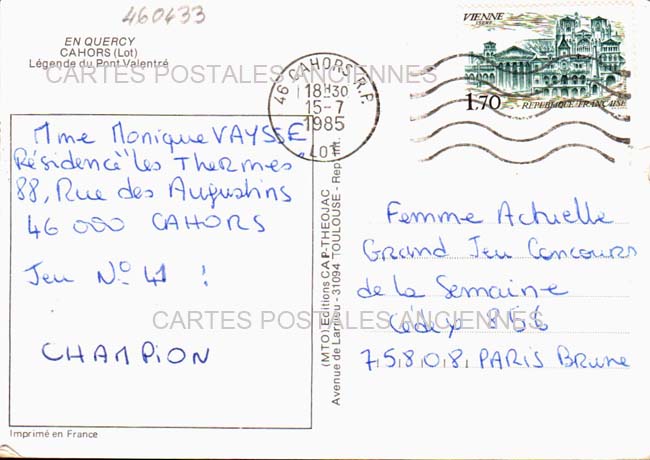 460433
EN QUERCY
CAHORS (Lot)
Légende du Pont Valentré
CARTES POSTALES ANCIENNES
46 CAHORS R.P.
18H30
15-7
1985
LOT
VIENNE
ISÈRE
1,70
REPUBLIQUE FRANÇAISE
Mme Monique VAYSSE
Résidence "Les Thermes"
88, Rue des Augustins
46 000 CAHORS
Jeu N° 41 !
CHAMPION
(MTO) Editions CAP-THEOJAC
Avenue de Larrieu - 31094 TOULOUSE - Rep. Int.
Femme Actuelle
Grand Jeu Concours
de la Semaine
Cédex 856
75808 PARIS Brune
CARTES POSTALES ANCIENNES
Imprimé en France